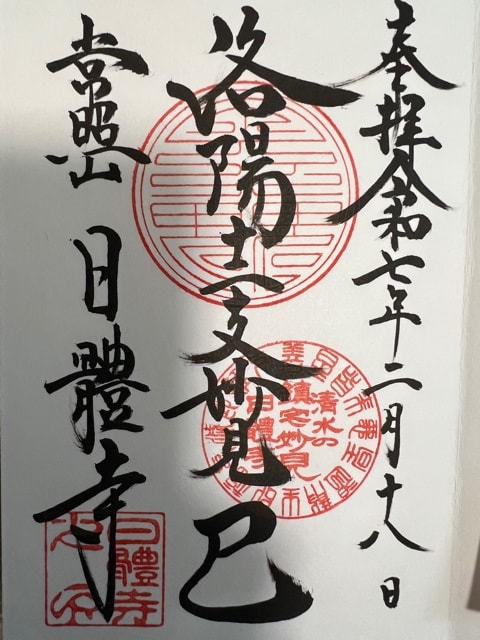 奉拝令和七年二月十八日
洛陽十二支妙見 巳
常照山 日體寺
清水の
鎮宅妙見
日體寺